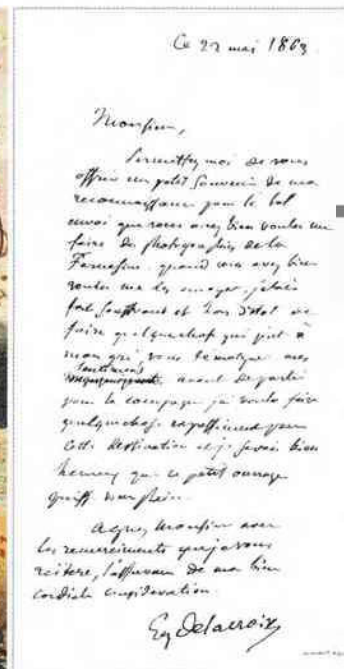 Ce 22 mai 1863.
Monsieur,
Permettez moi de vous
offrir un petit souvenir de ma
reconnaissance pour le bel
envoi que vous avez bien voulu me
faire des photographies de la
Farnesine. quand vous avez bien
voulu me les envoyer, j'étais
fort souffrant et hors d'état de
faire quelque chose qui put à
mon gré vous témoigner mes
sentiments
avant de partir
pour la campagne j'ai voulu faire
quelque chose expressément pour
cette destination et je serais bien
heureux que ce petit ouvrage
puisse vous plaire.
Agréez Monsieur avec
les remerciements que je vous
réitère, l'assurance de ma bien
cordiale considération.
Eug Delacroix